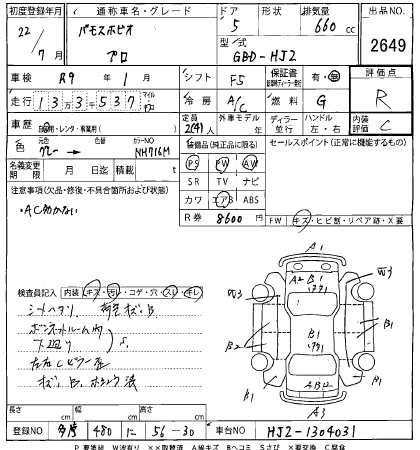 初度登録年月 通称車名・グレード ドア 形状 排気量 出品No.
22/7月 バモスホビオ プロ 5 660cc
型式 GBD-HJ2 2649
車検 R9年 1月 シフト F5 保証書 有・無 評価点
走行 133537 冷房 A/C 燃料 G R
車歴 自家用・レンタ・事業用( ) 定員 2(4)人 外車モデル年式 ディーラー 並行 ハンドル 左・右 内装評価 C
色 元色 グレー → 色替 カラーNO NH716M 装備品(純正品に限る) セールスポイント(正常に機能するもの)
名義変更期限 月 日 積載 t PS PW AW
注意事項(欠品・修復・不具合箇所および状態) SR TV ナビ
・AC効かない カワ エアB ABS
R券 8600円 FW キズ・ヒビ割・リペア跡・X要
検査員記入 内装 キズ・汚レ・コゲ・穴・スレ・キレ
シートヘタリ 荷室キズ、B
ボンネットルーム内
下廻り S
左右Cピラー歪
キズ、B
A1
A2 B1
W3 W3
B1
B2 B1
B1 B1
A3
長さ cm 幅 cm 高さ cm
登録NO 480 に 56-30 車台NO HJ2-1304031
P要塗装 W波有り XX取替済 A線キズ Bヘコミ Sさび X要交換 C腐食